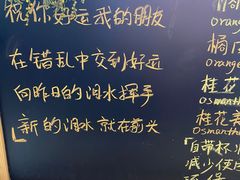 祝你好运 我的朋友
在错乱中交到好运
向昨日的泪水挥手
新的泪水就在前头
橘
orange
橘
orange
桂花
osmanth
桂花
osmanth
「自带杯
减少使用